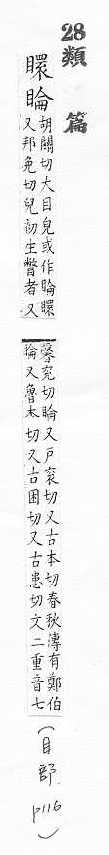 28類 篇
睴睔
胡關切大目皃或作睔睴
又邦免切兒初生瞥者又
古本切春秋傳有鄭伯
睔又魯本切又古困切又古患切文二重音七
(目部 p116)